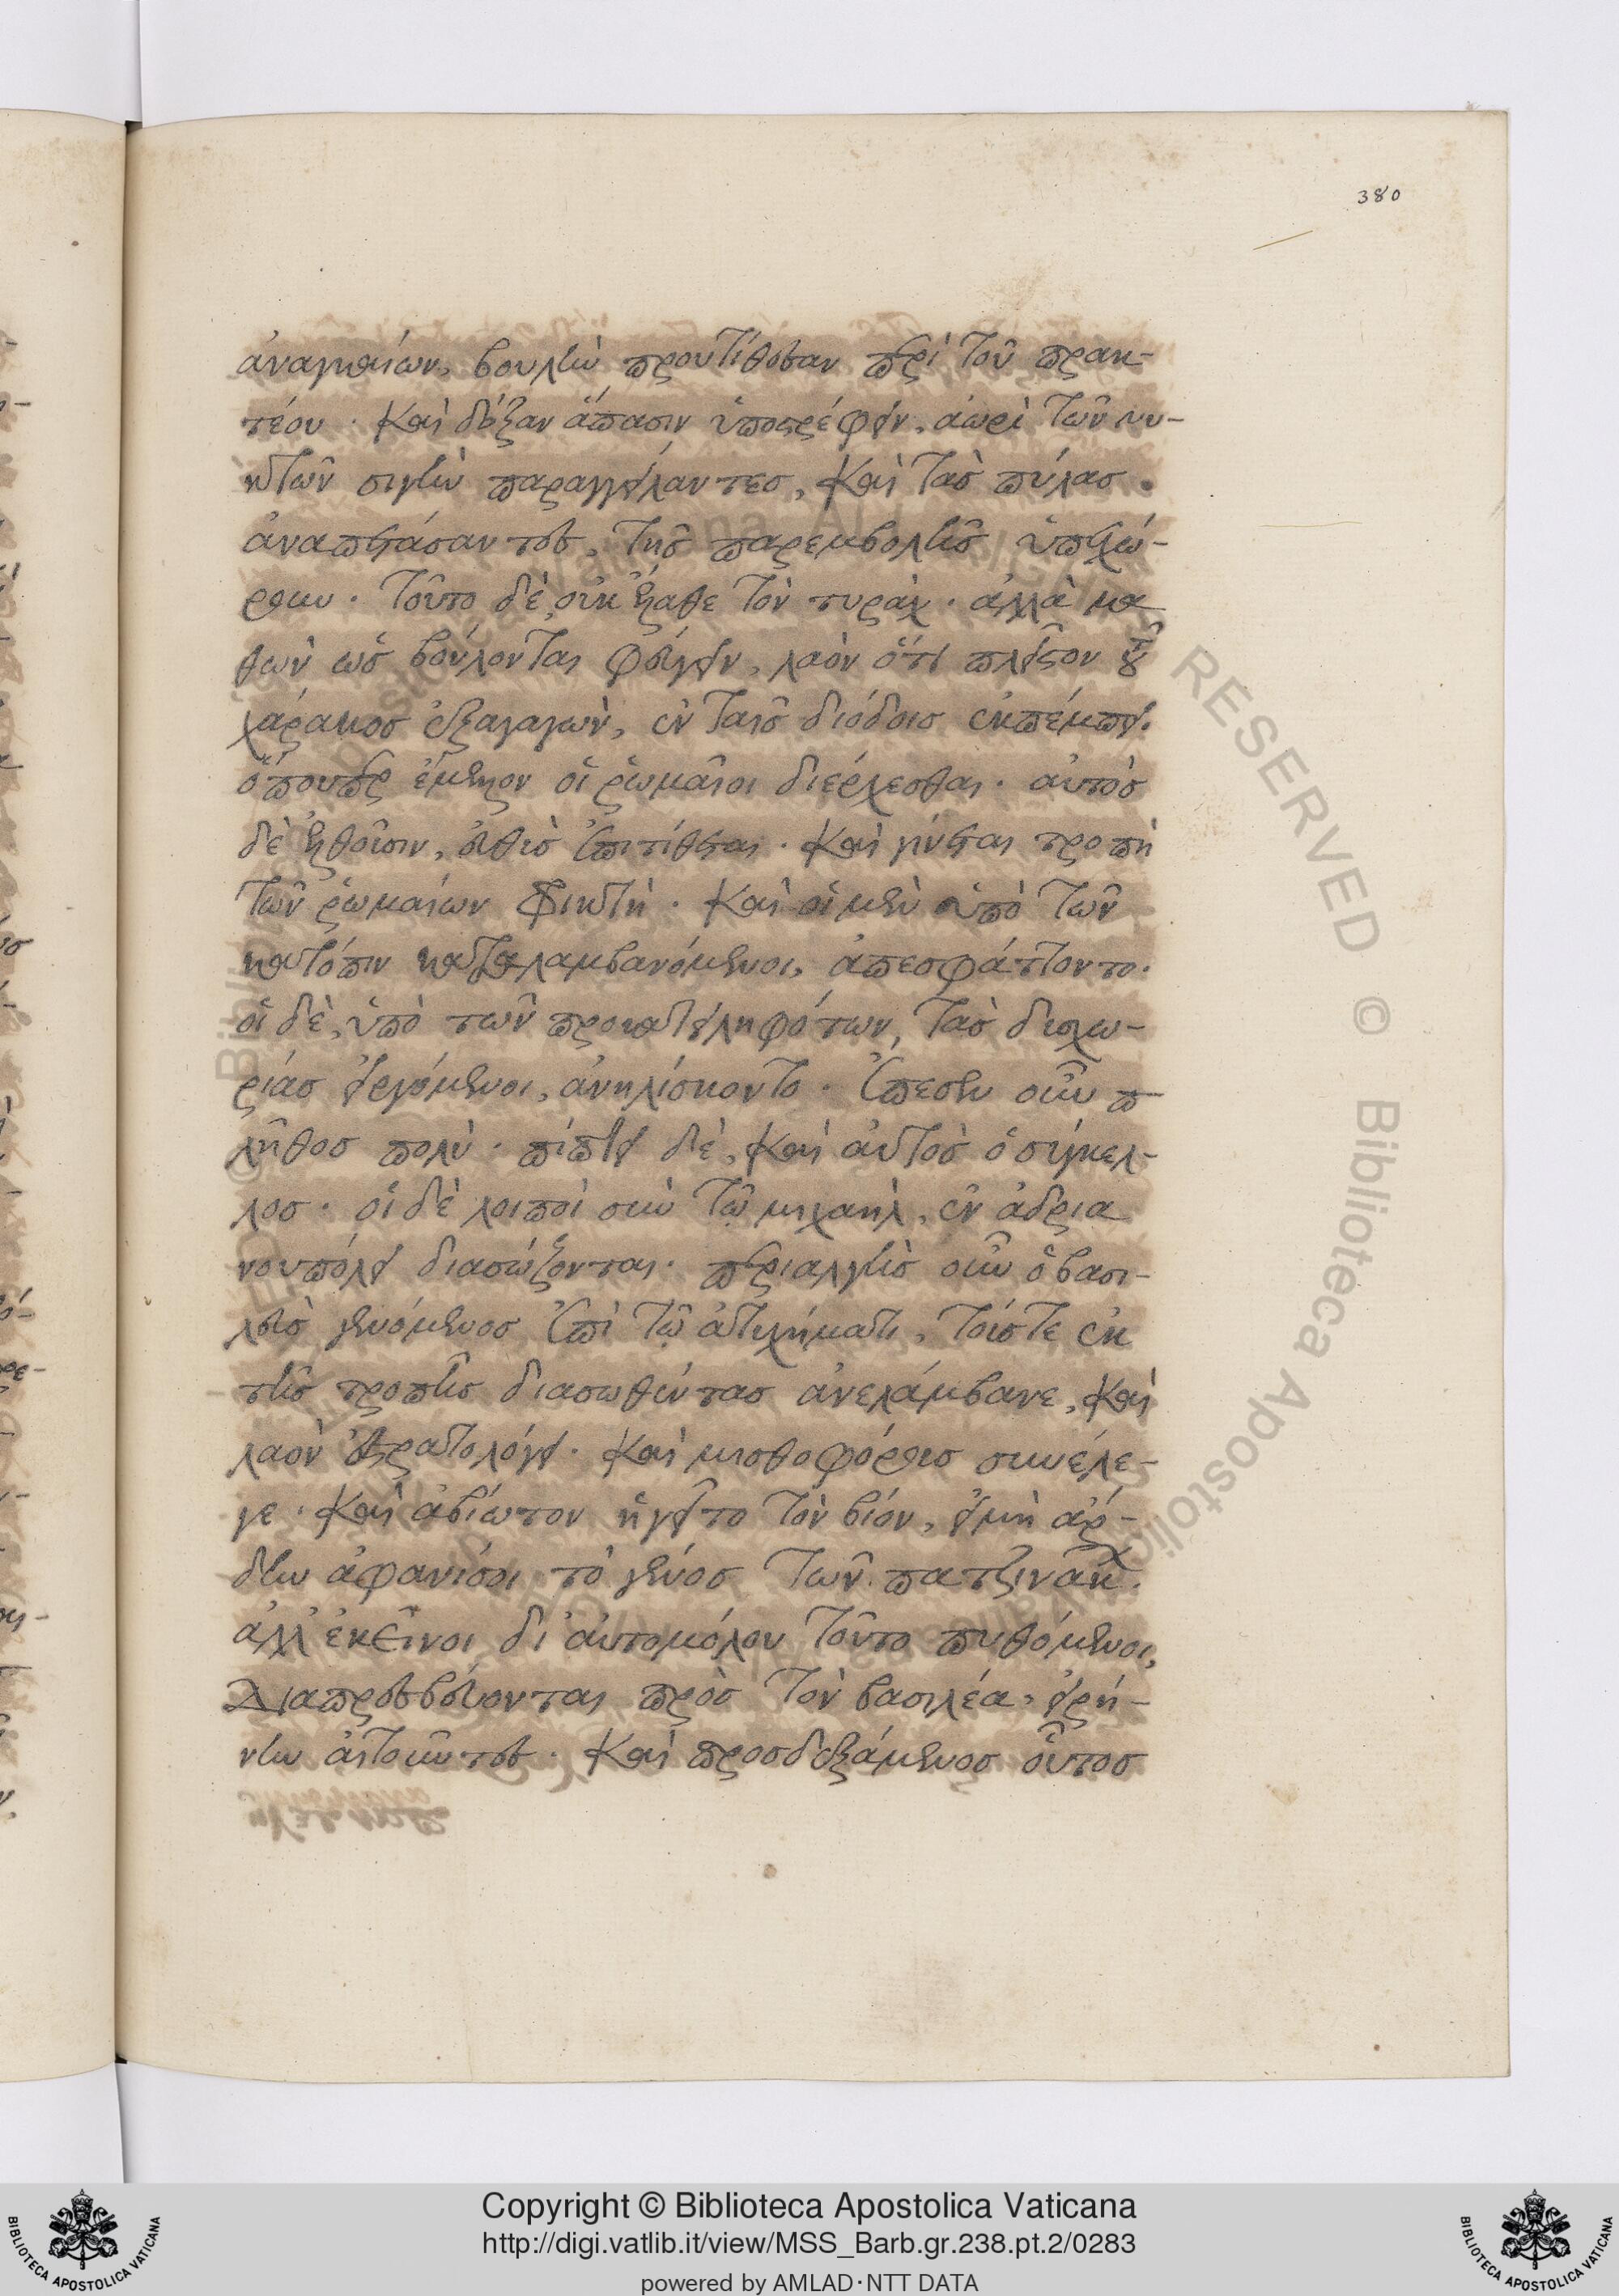 380
ἀναγκαίων, βουλὴν προυτίθεσαν περὶ τοῦ πρακ-
τέου. καὶ δόξαν ἅπασιν ὑποστρέφειν, ἀωρὶ τῶν νυ-
κτῶν σιγὴν παραγγείλαντες, καὶ τὰς πύλας.
ἀναπετάσαντες, τῆς παρεμβολῆς ὑπεχώ-
ρουν. τοῦτο δὲ οὐκ ἔλαθε τὸν τυράχ. ἀλλὰ μα
θὼν ὡς βούλονται φεύγειν, λαὸν ὅτι πλεῖστον τοῦ
χάρακος ἐξαγαγὼν, ἐν ταῖς διόδοις ἐκπέμπει.
ὅπουπερ ἔμελλον οἱ ῥωμαῖοι διέρχεσθαι. αὐτὸς
δὲ ἐξιοῦσιν, εὐθὺς ἐπιτίθεται. καὶ γίνεται τροπὴ
τῶν ῥωμαίων φρικτὴ. καὶ οἱ μὲν ὑπὸ τῶν
κατόπιν καταλαμβανόμενοι, ἀπεσφάττοντο.
οἱ δὲ, ὑπὸ τῶν προκατειληφότων, τὰς δυσχω-
ρίας εἰργόμενοι, ἀνηλίσκοντο. ἔπεσεν οὖν π
λῆθος πολὺ. πίπτει δὲ, καὶ αὐτὸς ὁ σύγκελ-
λος. οἱ δὲ λοιποὶ σὺν τῷ μιχαὴλ, ἐν ἀδρια
νουπόλει διασώζονται. περιαλγὴς οὖν ὁ βασι-
λεὺς γενόμενος ἐπὶ τῷ ἀτυχήματι, τούς τε ἐκ
τῆς τροπῆς διασωθέντας ἀνελάμβανε, καὶ
λαὸν ἐστρατολόγει. καὶ μισθοφόρους συνέλε-
γε. καὶ ἀβίωτον ἡγεῖτο τὸν βίον, εἰ μὴ ἄρ-
δην ἀφανίσοι τὸ γένος τῶν πατζινάκ.
ἀλλ' ἐκεῖνοι δι' αὐτομόλου τοῦτο πυθόμενοι,
Διαπρεσβεύονται πρὸς τὸν βασιλέα, εἰρή-
νην αἰτοῦντες. καὶ προσδεξάμενος οὗτος
Copyright © Biblioteca Apostolica Vaticana
http://digi.vatlib.it/view/MSS_Barb.gr.238.pt.2/0283
powered by AMLAD·NTT DATA
BIBLIOTECA APOSTOLICA VATICANA
BIBLIOTECA APOSTOLICA VATICANA